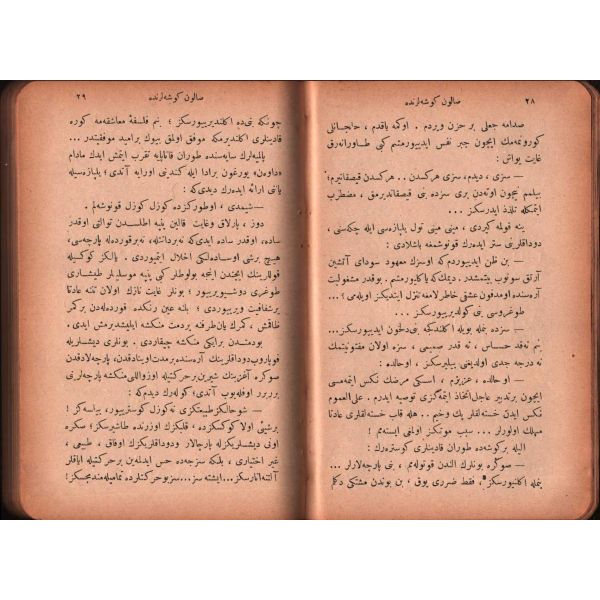 ٢٨ صالون كوشه‌لرنده
صدامه جعلی بر حزن ویردم . اوكمه باقدم ، حاجتلی
كورونمه‌مك ایچون جبر نفس ایدییورمشم كبی طاورانه‌رق
غایت یواش :
— سزی ، دیدم، سزی هركسدن .. هركسدن قیصقانیم ؛
بیلمم نیچون اوته‌دن بری سزده بنی قیصقاندیرمق ، مضطرب
ایتمكله تلذذ ایدرسكز ...
ینه قولمه كیردی ، مینی مینی تول یلپازه‌سی ایله چكه‌سنی ،
دوداقلرینی ستر ایده‌رك قونوشمغه باشلادی :
— بن ظن ایدییوردم كه اوسزك معهود سودای آتشین
آرتق سونوب بیتمشدر . دیمك كه یاكلیورمشم . بوقدر مشغولیت
آره‌سنده اومدفون عشق خاطرلامغه تنزل ایتدیكز اویله‌می ؟ ...
طوغروسی بنی كولدیرییورسكز ...
— سزده بنمله بویله اكلندكجه بنی دلخون ایدییورسكز ...
بنم نه‌قدر حساس ، نه قدر صمیمی ، سزه اولان مفتونیتمك
نه درجه جدی اولدیغنی بیلیرسكز ، اوحالده :
— اوحالده ، عزیزم ، اسكی مرضك نكس ایتمه‌مسی
ایچون بر تدبیر عاجل اتخاذ ایتمه‌كزی توصیه ایدرم . علی‌العموم
نكس ایدن خسته‌لقلر پك وخیم .. هله قلب خسته‌لقلری عادتا
مهلك اولورلر ... سبب موتكز اولمغی ایسته‌مم !
الیله بركوشه‌ده طوران قادینلری كوستره‌رك :
— صوكره بونلرك الندن قورتوله‌مم ، بنی پارچه‌لارلر ...
بنمله اكلنیورسكز ، فقط ضرری یوق ، بن بوندن مشتكی دكلم
صالون كوشه‌لرنده ٢٩
چونكه بنی‌ده اكلندیرییورسكز ؛ بنم فلسفهٔ معاشقه‌مه كوره
قادینلری اكلندیرمكه موفق اولمق بیوك برامید موفقیتدر ...
پالمیه‌لرك سایه‌سنده طوران قاناپایه تقرب ایتمش ایدك مادام
«داوه‌ن» یورغون برادا ایله كندینی اورایه آتدی ؛ یلپازه‌سیله
یاننی ارائه ایده‌رك دیدی‌كه :
— شیمدی ، اوطوركزده كوزل كوزل قونوشه‌لم .
دوز ، پارلاق وغایت قالین پنبه اطلسدن توالتی اوقدر
ساده، اوقدر ساده ایدی‌كه نه‌بردانتله، نه‌برقورده‌له پارچه‌سی،
هیچ برشی اوساده‌لكی اخلال ایتمیوردی . یالكز كوكسیله
قوللرینك ایچندن اینجه بولوطلر كبی پنبه موسلینلر طیشاری
طوغری دوشیویرییور ؛ بونلر غایت نازك اولان تننه عادتا
برشفافیت ویرییوردی ؛ بلنه عین رنكده قورده‌له‌دن بركمر
طاقمش ، كمرك یان‌طرفنه بردمت منكشه ایلیشدیرمش ایدی .
بودمتدن برایكی منكشه چیقاردی . بونلری دیشلریله
قوپاروب‌دوداقلرینك آره‌سنده برمدت‌اویناتدقدن، پارچه‌لادقدن
صوكره آغزینك شیرین‌برحركتیله اوزواللی‌منكشه پارچه‌لرینی
بررر اوفله‌یوب آتدی؛ كوله‌رك دیدم‌كه :
— شوحالكز طبیعتكزی نه‌كوزل كوستریور، بیله‌سكز !
برشیئی اولا كوكسكزده ، قلبكزك اوزرنده طاشیرسكز؛ سكره
اونی دیشلریكزله پارچالار ودوداقلریكزك اوفاق ، طبیعی ،
غیر اختیاری ، بلكه سزجه‌ده حس ایدلمه‌ین برحركتیله ایاقلر
آلتنه آتارسكز... ایشته سز... سزبوحركتلرده تمامیله‌مندمجسكز!